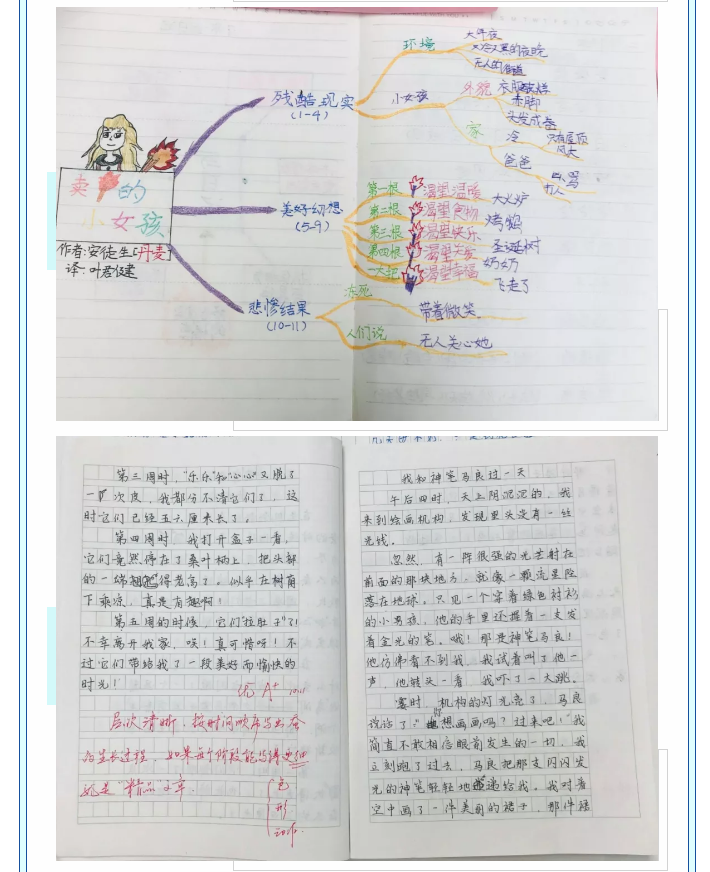 卖的
小女孩
作者:安徒生[丹麦]
译:叶君健
残酷现实
(1-4)
环境
大年夜
又冷又黑的夜晚
无人的街道
小女孩
外貌
衣服破烂
赤脚
头发成卷
家
冷
只有屋顶
风大
爸爸
打人
美好幻想
(5-9)
第一根
渴望温暖
大火炉
第二根
渴望食物
烤鹅
第三根
渴望快乐
圣诞树
第四根
渴望关爱
奶奶
一大把
渴望幸福
飞走了
悲惨结果
(10-11)
冻死
带着微笑
人们说
无人关心她
第三周时,“乐乐”和“心心”又脱了
一次皮,我都分不清它们了,这
时它们已经五六厘米长了。
第四周时,我打开盒子一看,
它们竟然停在了桑叶柄上,把头部
的一端翘得老高了。似乎在树荫
下乘凉,真是有趣啊!
第五周的时候,它们“拉肚子”了!
不幸离开我家,唉!真可惜呀!不
过它们带给我了一段美好而愉快的
时光!
优 A+
层次清晰,按时间顺序写出蚕
的生长过程,如果每个阶段能写得更细
就是“精品”文章.
色
形
动作
我和神笔马良过一天
午后四时,天上阴沉沉的,我
来到绘画机构,发现里头没有一丝
光线。
忽然,有一阵很强的光芒射在
前面的那块地方,就像一颗流星坠
落在地球。只见一个穿着绿色衬衫
的小男孩,他的手里还握着一支发
着金光的笔。哦!那是神笔马良!
他仿佛看不到我,我试着叫了他一
声,他转头一看,我吓了一大跳。
霎时,机构的灯光亮了,马良
说话了:“你想画画吗?过来吧!”我
简直不敢相信眼前发生的一切,我
立刻跑了过去,马良把那支闪闪发
光的神笔轻轻地递给我。我对着
空中画了一件美丽的裙子,那件裙